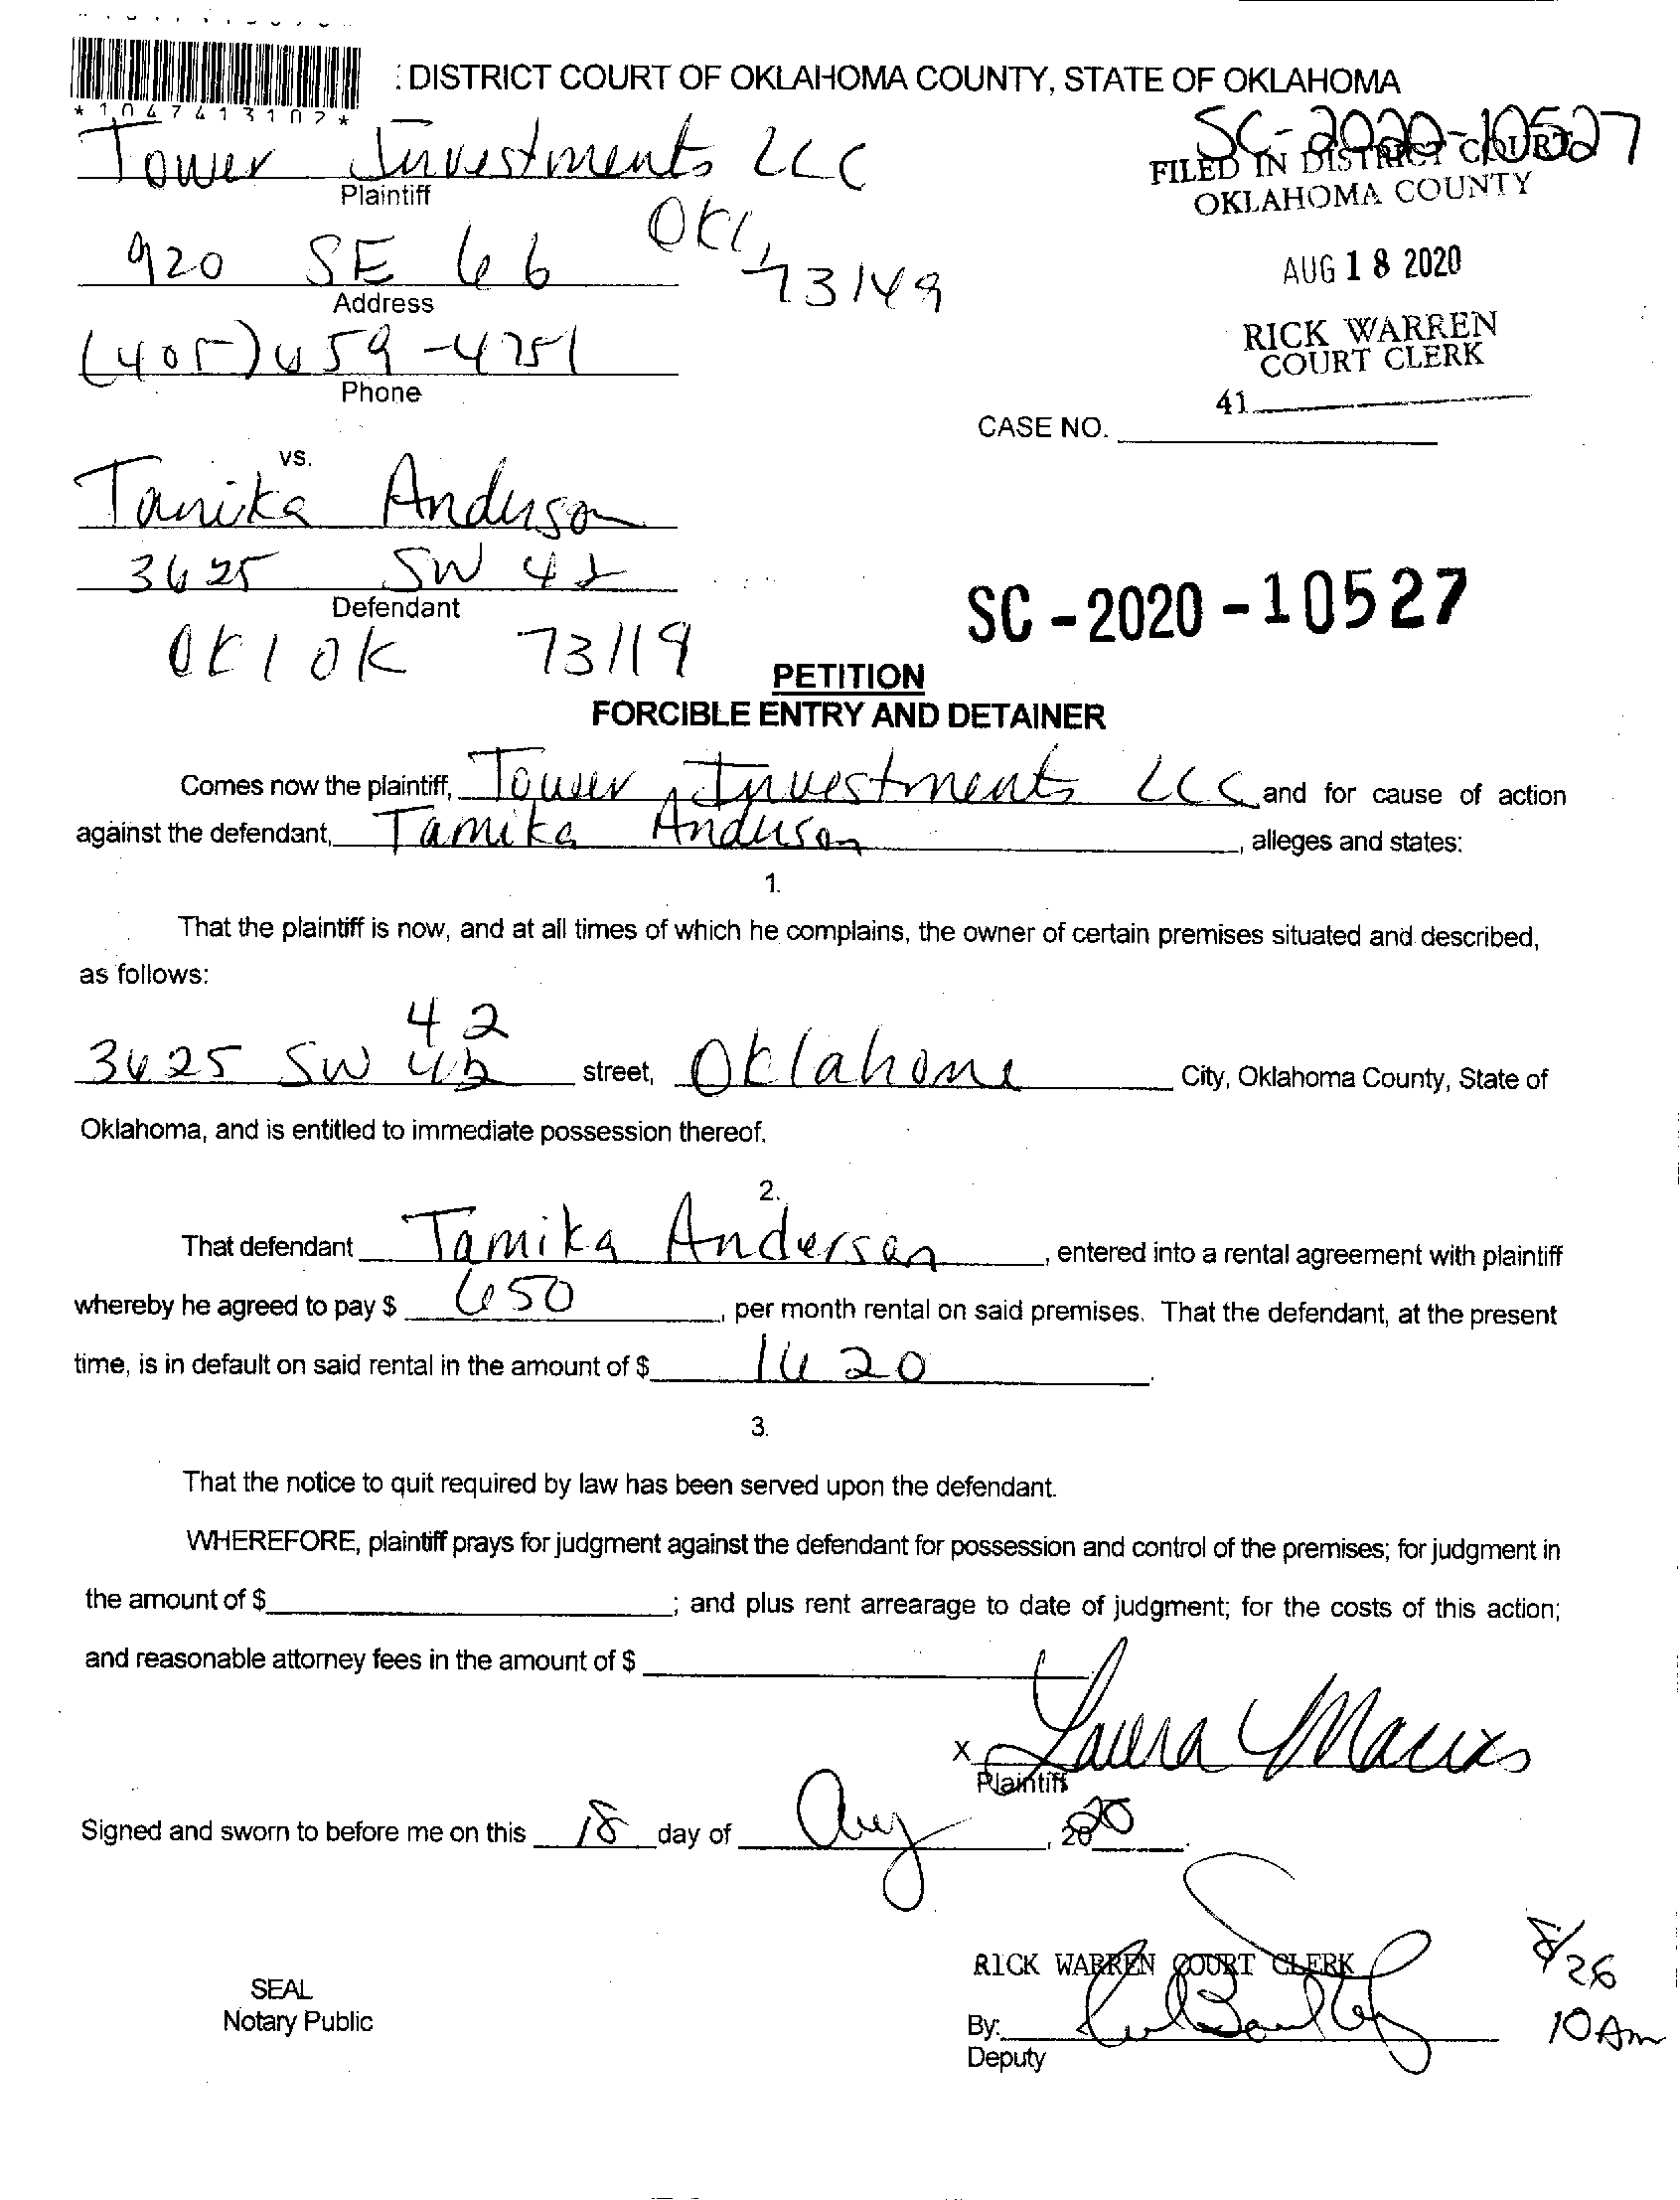 *1047413102*
: DISTRICT COURT OF OKLAHOMA COUNTY, STATE OF OKLAHOMA
SC-2020-10527
FILED IN DISTRICT COURT
OKLAHOMA COUNTY
AUG 18 2020
RICK WARREN
COURT CLERK
41
Tower Investments LLC
Plaintiff
920 SE 66 OKC, 73149
Address
(405) 659-4751
Phone
CASE NO.
vs.
Tamika Anderson
3625 SW 42
Defendant
OKC OK 73119
SC-2020-10527
PETITION
FORCIBLE ENTRY AND DETAINER
Comes now the plaintiff, Tower Investments LLC and for cause of action
against the defendant, Tamika Anderson, alleges and states:
1.
That the plaintiff is now, and at all times of which he complains, the owner of certain premises situated and described,
as follows:
42
3625 SW 42 street, Oklahoma City, Oklahoma County, State of
Oklahoma, and is entitled to immediate possession thereof.
2.
That defendant Tamika Anderson, entered into a rental agreement with plaintiff
whereby he agreed to pay $ 650, per month rental on said premises. That the defendant, at the present
time, is in default on said rental in the amount of $ 1620.
3.
That the notice to quit required by law has been served upon the defendant.
WHEREFORE, plaintiff prays for judgment against the defendant for possession and control of the premises; for judgment in
the amount of $ ; and plus rent arrearage to date of judgment; for the costs of this action;
and reasonable attorney fees in the amount of $
X Laura Macias
Plaintiff
Signed and sworn to before me on this 18 day of Aug, 2020.
RICK WARREN COURT CLERK
8/26
10 Am
SEAL
Notary Public
By:
Deputy